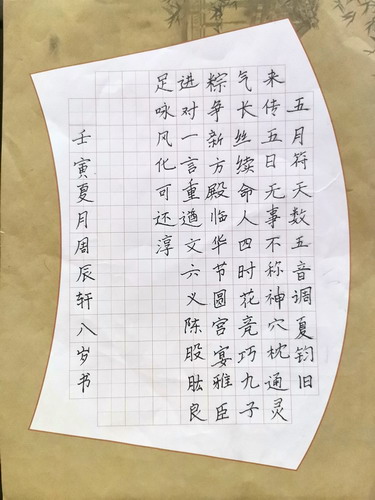 五月符天数五音调夏钧旧
来传五日无事不称神穴枕通灵
气长丝续命人四时花竞巧九子
粽争新方殿临华节圆宫宴雅臣
进对一言重遒文六义陈股肱良
足咏风化可还淳
壬寅夏月周辰轩八岁书